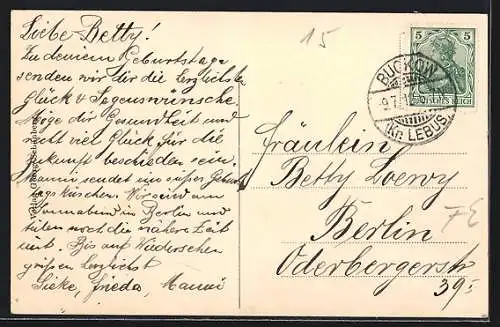 Liebe Betty!
Zu deinem Geburtstage
senden wir dir die herzlichsten
Glück & Segenswünsche.
Möge dir Gesundheit und
recht viel Glück für die
Zukunft beschieden sein.
Mami sendet ein süßes Geburts
tagsküsschen. Wir sind am
Sonnabend in Berlin und
teilen noch die nähere Zeit
mit. Bis auf Wiedersehen
grüßen herzlichst
Frieda, Mami
15
5 5
DEUTSCHES REICH
BUCKOW
9.7.
(Kr. LEBUS)
Fräulein
Betty Loewy
Berlin
Oderbergerstr
39